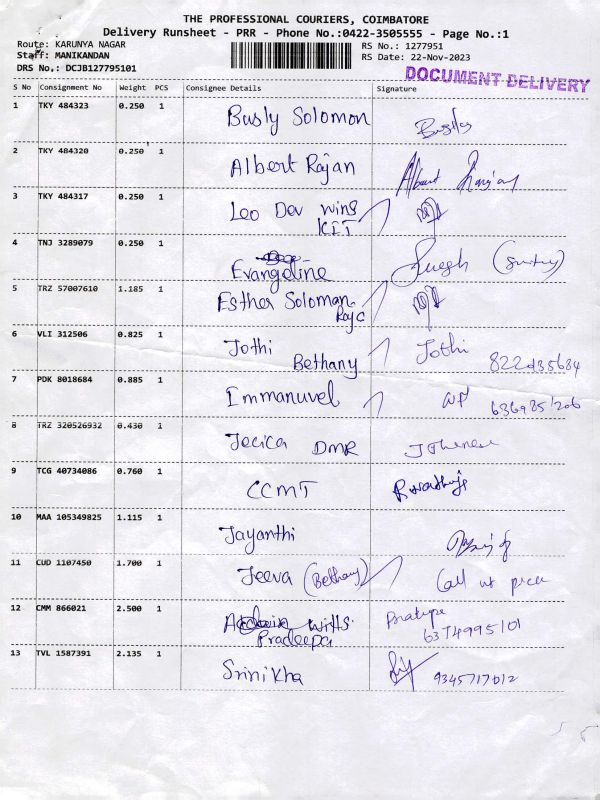 THE PROFESSIONAL COURIERS, COIMBATORE
Delivery Runsheet - PRR - Phone No.:0422-3505555 - Page No.:1
Route: KARUNYA NAGAR RS No.: 1277951
Staff: MANIKANDAN RS Date: 22-Nov-2023
DRS No,: DCJB127795101 DOCUMENT DELIVERY
S No Consignment No Weight PCS Consignee Details Signature
1 TKY 484323 0.250 1 Busly Solomon Busly
2 TKY 484320 0.250 1 Albert Rajan Albert Rajan
3 TKY 484317 0.250 1 Leo Dev wins
KIT
4 TNJ 3289079 0.250 1 Evangeline
5 TRZ 57007610 1.185 1 Esther Soloman
6 VLI 312506 0.825 1 Jothi Bethany Jothi
7 PDK 8018684 0.885 1 Immanuvel
8 TRZ 320526932 0.430 1 Jecica DMR
9 TCG 40734086 0.760 1 CCMT
10 MAA 105349825 1.115 1 Jayanthi
11 CUD 1107450 1.700 1 Jeeva (Bethany) Call
12 CMM 866021 2.500 1
Pradeepa
13 TVL 1587391 2.135 1 Srinikha 9345717012